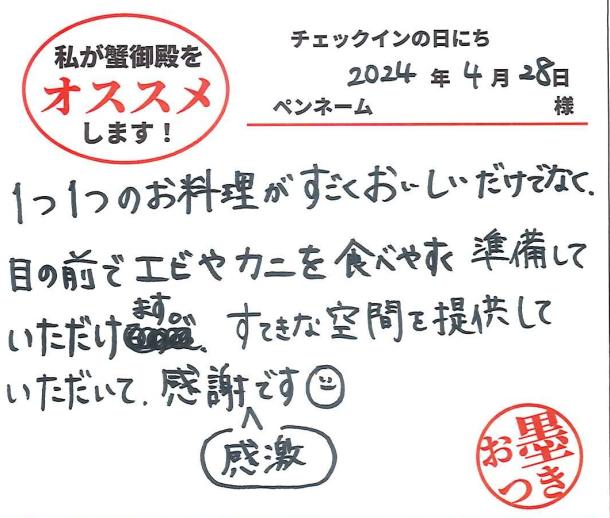 私が蟹御殿を
オススメ
します!
チェックインの日にち
2024年4月28日
ペンネーム 様
1つ1つのお料理がすごくおいしいだけでなく、
目の前でエビやカニを食べやすく準備して
いただけます。すてきな空間を提供して
いただいて、感謝です
感激
お墨
つき